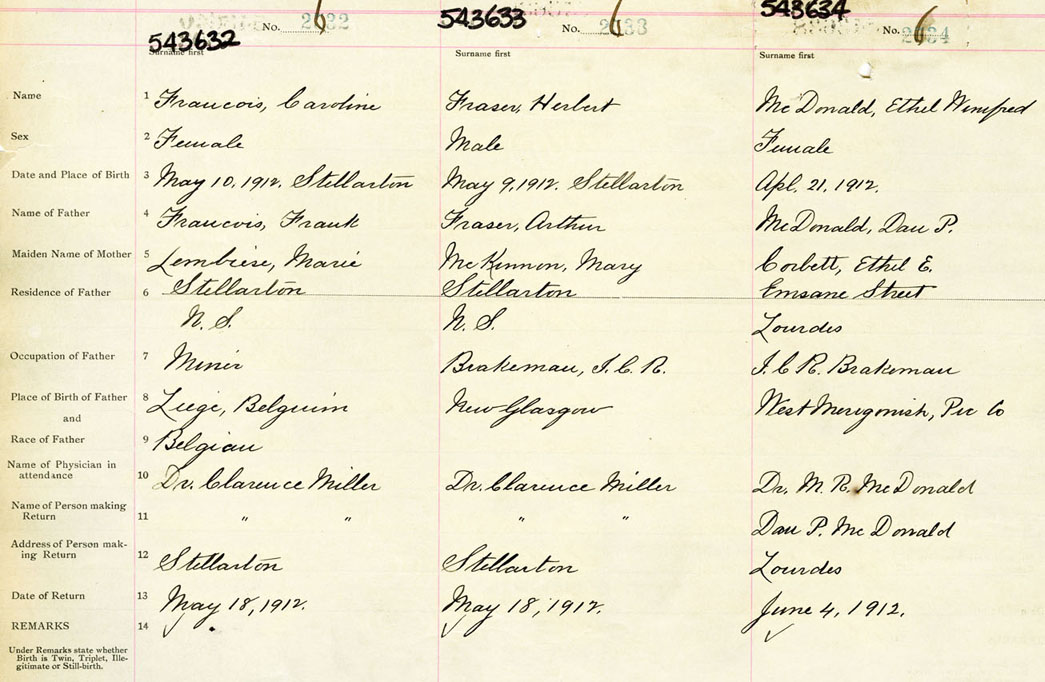 543632 No. 2632 543633 No. 2633 543634 No. 2634
Surname first Surname first Surname first
Name 1 Francois, Caroline Fraser, Herbert McDonald, Ethel Winifred
Sex 2 Female Male Female
Date and Place of Birth 3 May 10, 1912. Stellarton May 9, 1912. Stellarton Apl. 21, 1912.
Name of Father 4 Francois, Frank Fraser, Arthur McDonald, Dan P.
Maiden Name of Mother 5 Lembiese, Marie McKinnon, Mary Corbett, Ethel E.
Residence of Father 6 Stellarton Stellarton Street
N. S. N. S. Lourdes
Occupation of Father 7 Miner Brakeman, I.C.R. I.C.R. Brakeman
Place of Birth of Father 8 Liege, Belguim New Glasgow West Merigonish, Pic Co
and
Race of Father 9 Belgian
Name of Physician in
attendance 10 Dr. Clarence Miller Dr. Clarence Miller Dr. M. R. McDonald
Name of Person making
Return 11 " " " " Dan P. McDonald
Address of Person mak-
ing Return 12 Stellarton Stellarton Lourdes
Date of Return 13 May 18, 1912. May 18, 1912. June 4, 1912.
REMARKS 14
Under Remarks state whether
Birth is Twin, Triplet, Ille-
gitimate or Still-birth.